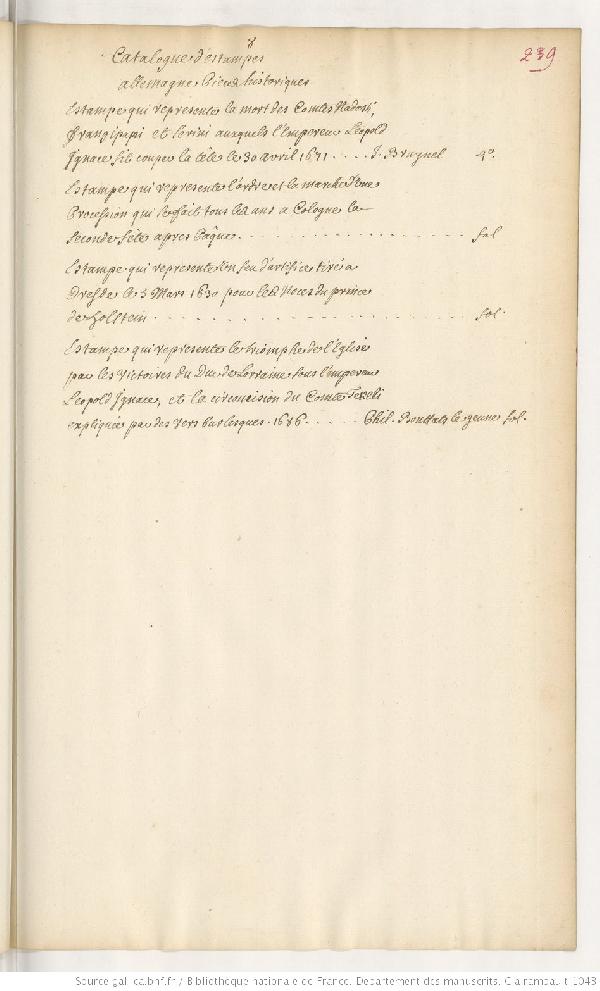 8
239
Catalogue d'estampes
allemagne Pieces historiques
Estampe qui represente la mort des Comtes Nadosti,
Frangipani et Serini auxquels l'Empereur Leopold
Ignace fit couper la tête le 30 avril 1671 .... J. Brugnel 4°.
Estampe qui represente l'ordre et la marche d'une
Procession qui se fait tous les ans a Cologne la
seconde fête apres Pâque. fol
Estampe qui represente un feu d'artifice tiré a
Dresde le 3 Mars 1630 pour les Noces du prince
de holltein fol.
Estampe qui represente le triomphe de l'Eglise
par les victoires du Duc de Lorraine sous l'empereur
Leopold Ignace, et la circoncision du Comte Tekeli
expliquée par des vers burlesques. 1686 ..... Phil. Bouttats le jeune fol.
Source gallica.bnf.fr / Bibliothèque nationale de France. Département des manuscrits. Clairambault 1043